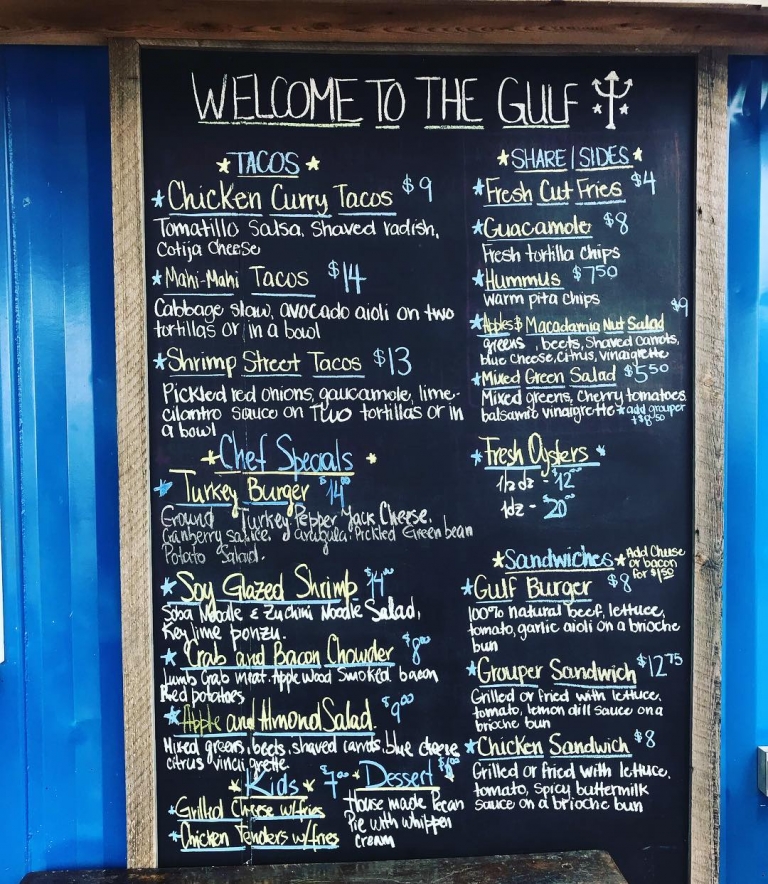 WELCOME TO THE GULF
TACOS
Chicken Curry Tacos $9
Tomatillo Salsa, Shaved radish,
Cotija Cheese
Mahi-Mahi Tacos $14
Cabbage slaw, avocado aioli on two
tortillas or in a bowl
Shrimp Street Tacos $13
Pickled red onions, gaucamole, lime-
cilantro sauce on Two tortillas or in
a bowl
Chef Specials
Turkey Burger $14.00
Ground Turkey Pepper Jack Cheese.
Cranberry sauce. arugula. Pickled Green bean
Potato Salad.
Soy Glazed Shrimp $14.00
Soba Noodle & Zuchini Noodle Salad,
Key lime ponzu.
Crab and Bacon Chowder $8.00
Lumb Crab meat. Apple Wood Smoked bacon
Red potatoes
Apple and Almond Salad. $9.00
Mixed greens, beets, shaved carrots, blue cheese
citrus vinaigrette.
Kids $7.00
Grilled Cheese w/fries
Chicken Tenders w/fries
Dessert
House made Pecan
Pie with whipper
cream
SHARE/SIDES
Fresh Cut Fries $4
Guacamole $8
Fresh tortilla chips
Hummus $7.50
warm pita chips
$9
Apples & Macadamia Nut Salad
greens, beets, Shaved carrots,
blue cheese, citrus, vinaigrette
Mixed Green Salad $5.50
Mixed greens, cherry tomatoes
balsamic vinaigrette *add grouper
+$8.50
Fresh Oysters
1/2 dz - $12.00
1dz - $20.00
Sandwiches
Add Cheese
or bacon
for $1.50
Gulf Burger $8
100% natural beef, lettuce,
tomato, garlic aioli on a brioche
bun
Grouper Sandwich $12.75
Grilled or fried with lettuce,
tomato, lemon dill sauce on a
brioche bun
Chicken Sandwich $8
Grilled or fried with lettuce,
tomato, spicy buttermilk
sauce on a brioche bun